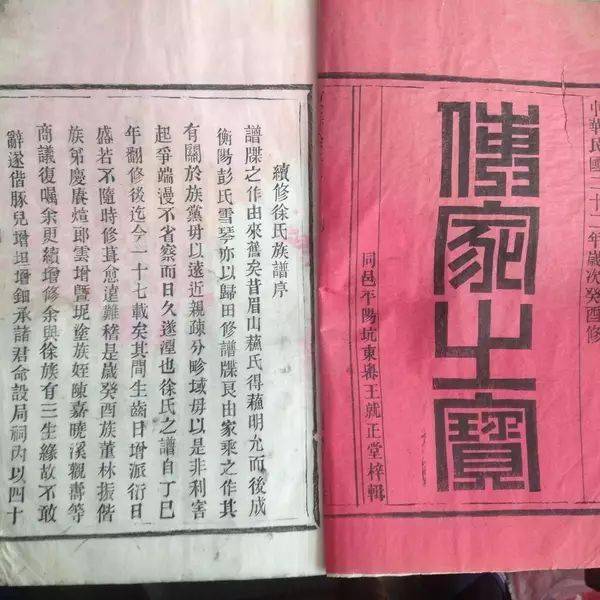 中華民國二十二年歲次癸酉修
傳家之寶
同邑平陽坑東審王就正堂梓輯
續修徐氏族譜序
譜牒之作由來舊矣昔眉山蘓氏得蘓明允而後成
衡陽彭氏雪琴亦以歸田修譜牒艮由家乘之作其
有關於族黨毋以遠近親疎分畛域毋以是非利害
起爭端漫不省察而日久遂湮也徐氏之譜自丁巳
年翻修後迄今一十七載矣其間生齒日增派衍日
盛若不隨時修葺愈遠難稽是歲癸酉族董林振偕
族弟慶賡煊郎雲增暨坭塗族姪陳嘉曉溪觀壽等
商議復囑余更續增修余與徐族有三生緣故不敢
辭遂偕豚兒增坦增鈿承諸君命設局祠內以四十